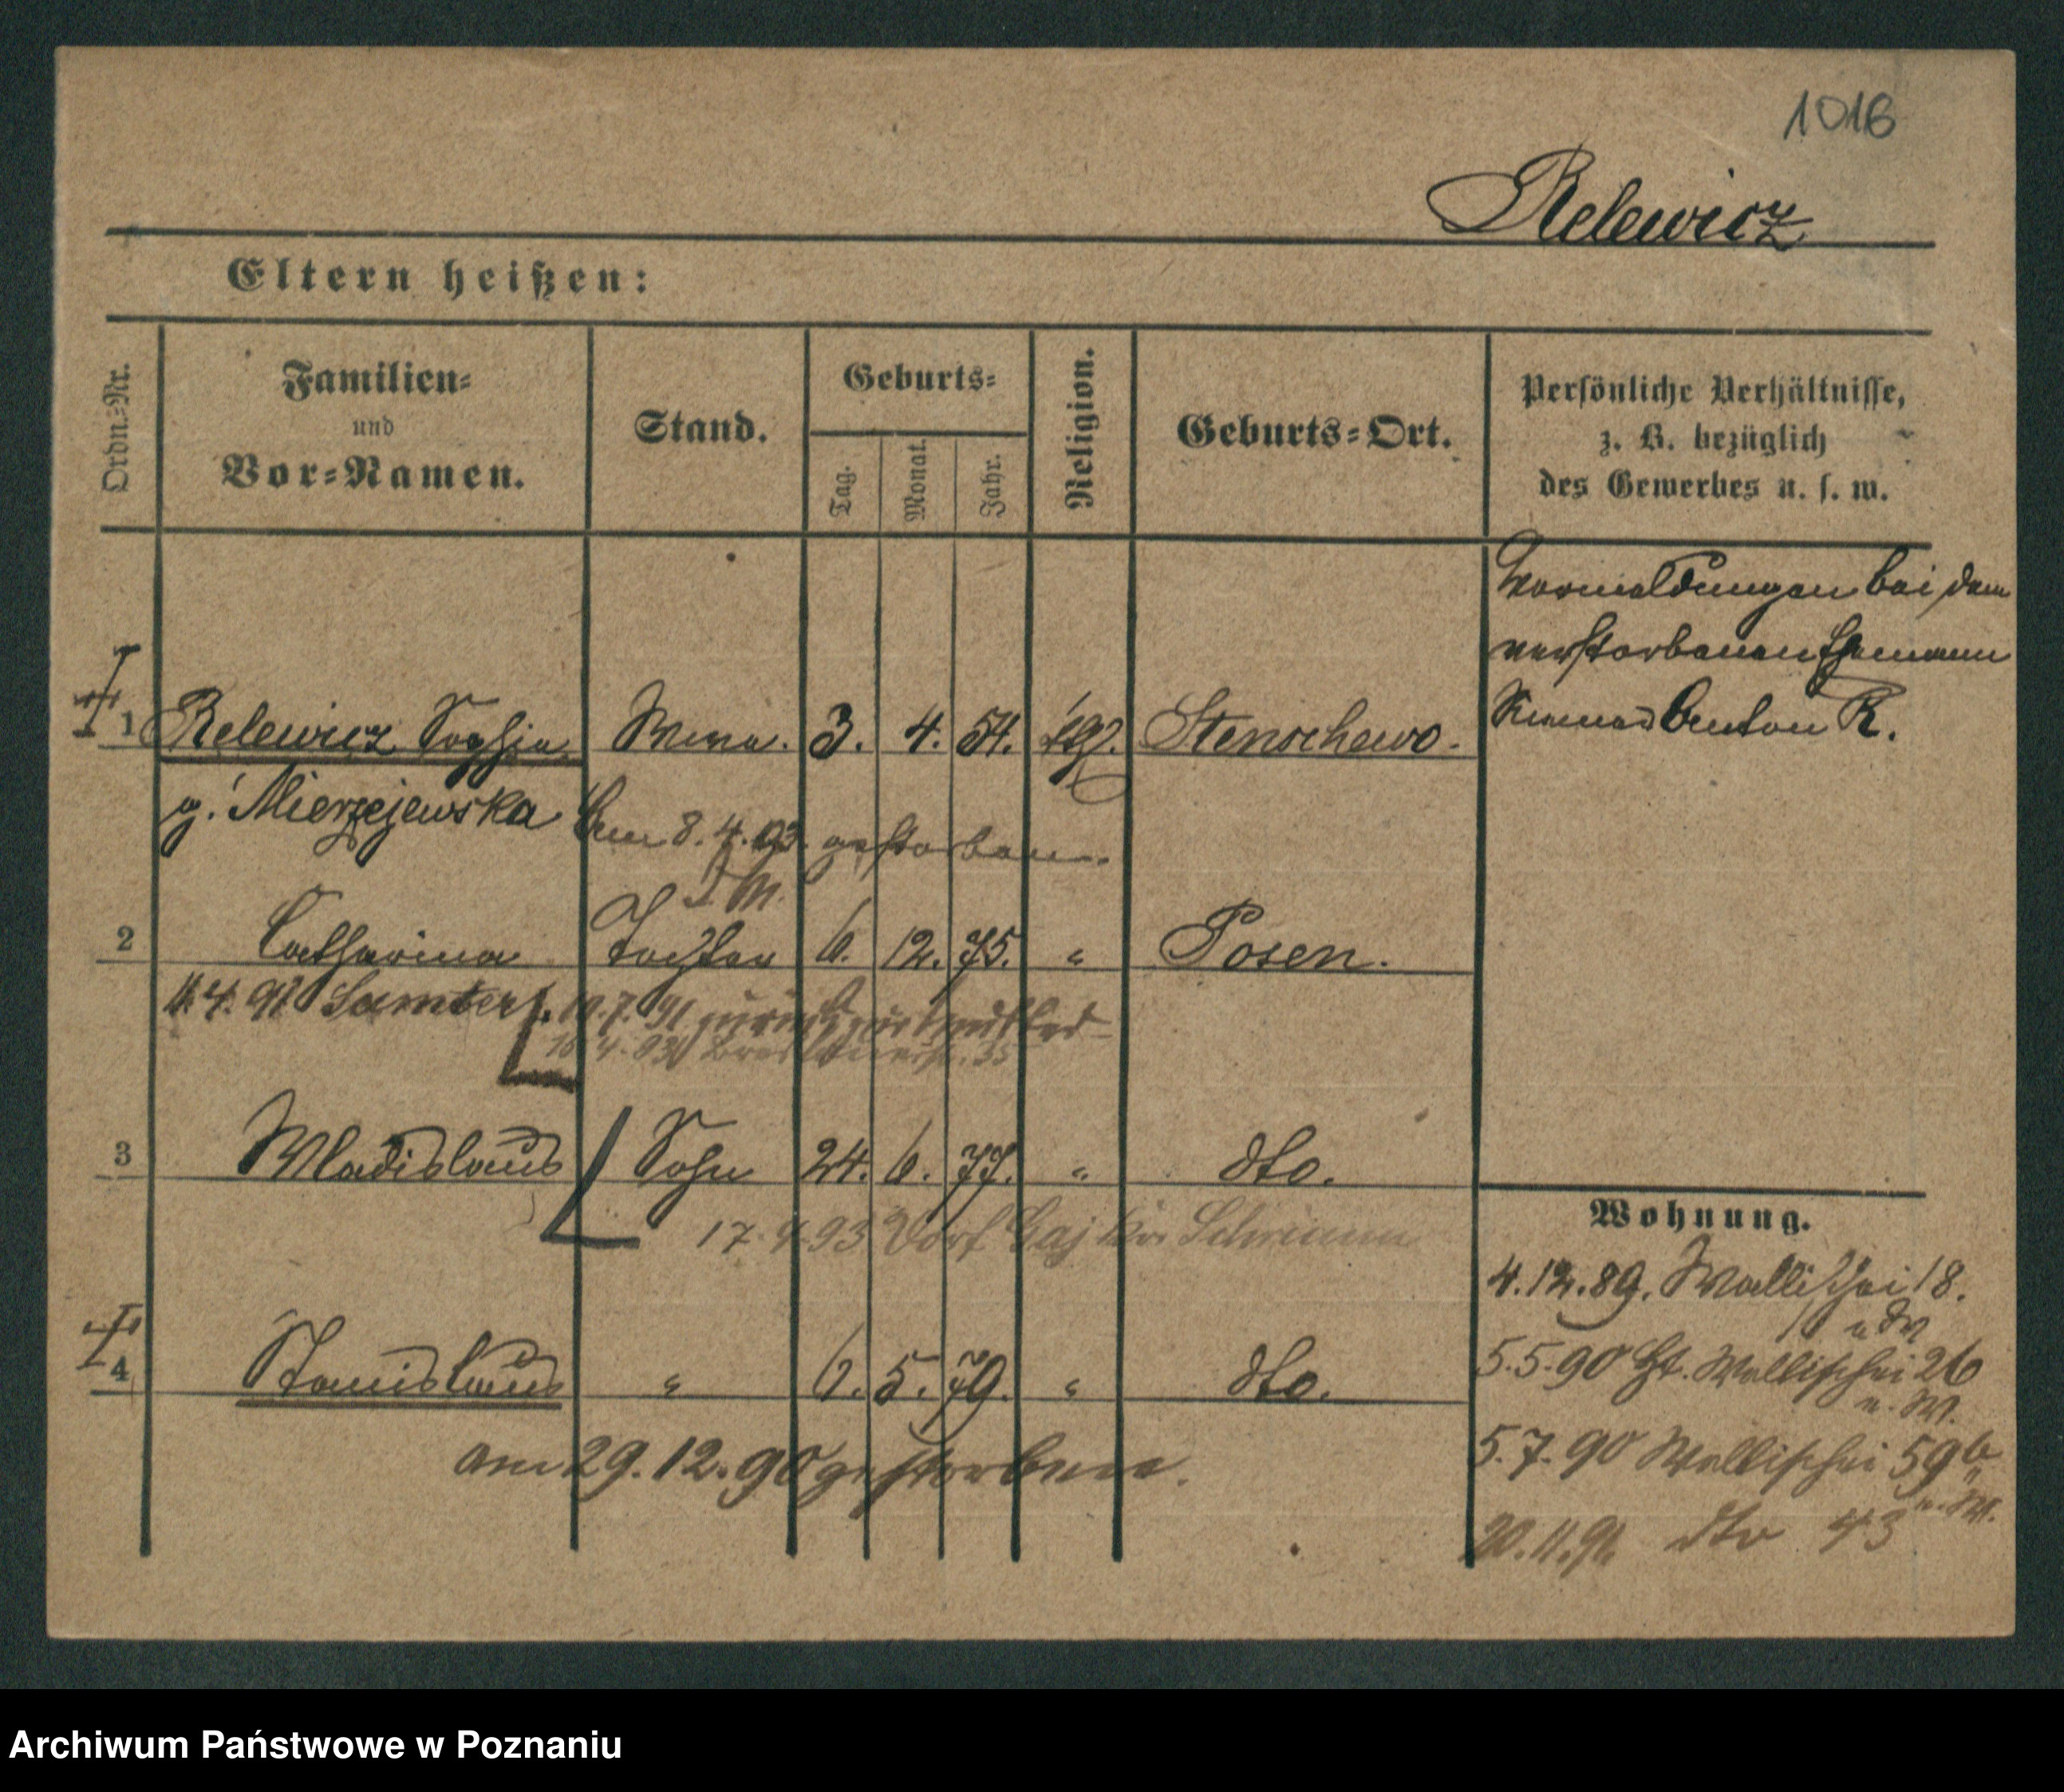 1016
Relewicz
Eltern heißen:
Ordn.=Nr.
Familien=
und
Vor=Namen.
Stand.
Geburts=
Tag.
Monat.
Jahr.
Religion.
Geburts=Ort.
Persönliche Verhältnisse,
z. B. bezüglich
des Gewerbes u. s. w.
Vormeldungen bei dem
verstorbenen Ehemann
Anton R.
1 Relewicz Sophia Wwe. 3. 4. 54. Stenschewo.
g. Mierzejewska Am 8. 4. 93. gestorben.
2 Catharina Tochter 6. 12. 75. " Posen.
4. 91 Samter 7. 91 zurück
4. 93 35
3 Wladislaus Sohn 24. 6. 77. " dto.
17. 4. 93 Dorf Gaj Kr. Schrimm
4 Stanislaus " 6. 5. 79. " dto.
am 29. 12. 90 gestorben.
Wohnung.
4. 12. 89. Wallischei 18.
5. 5. 90 Wallischei 26
5. 7. 90 Wallischei 59b
11. 91. dto 43
Archiwum Państwowe w Poznaniu